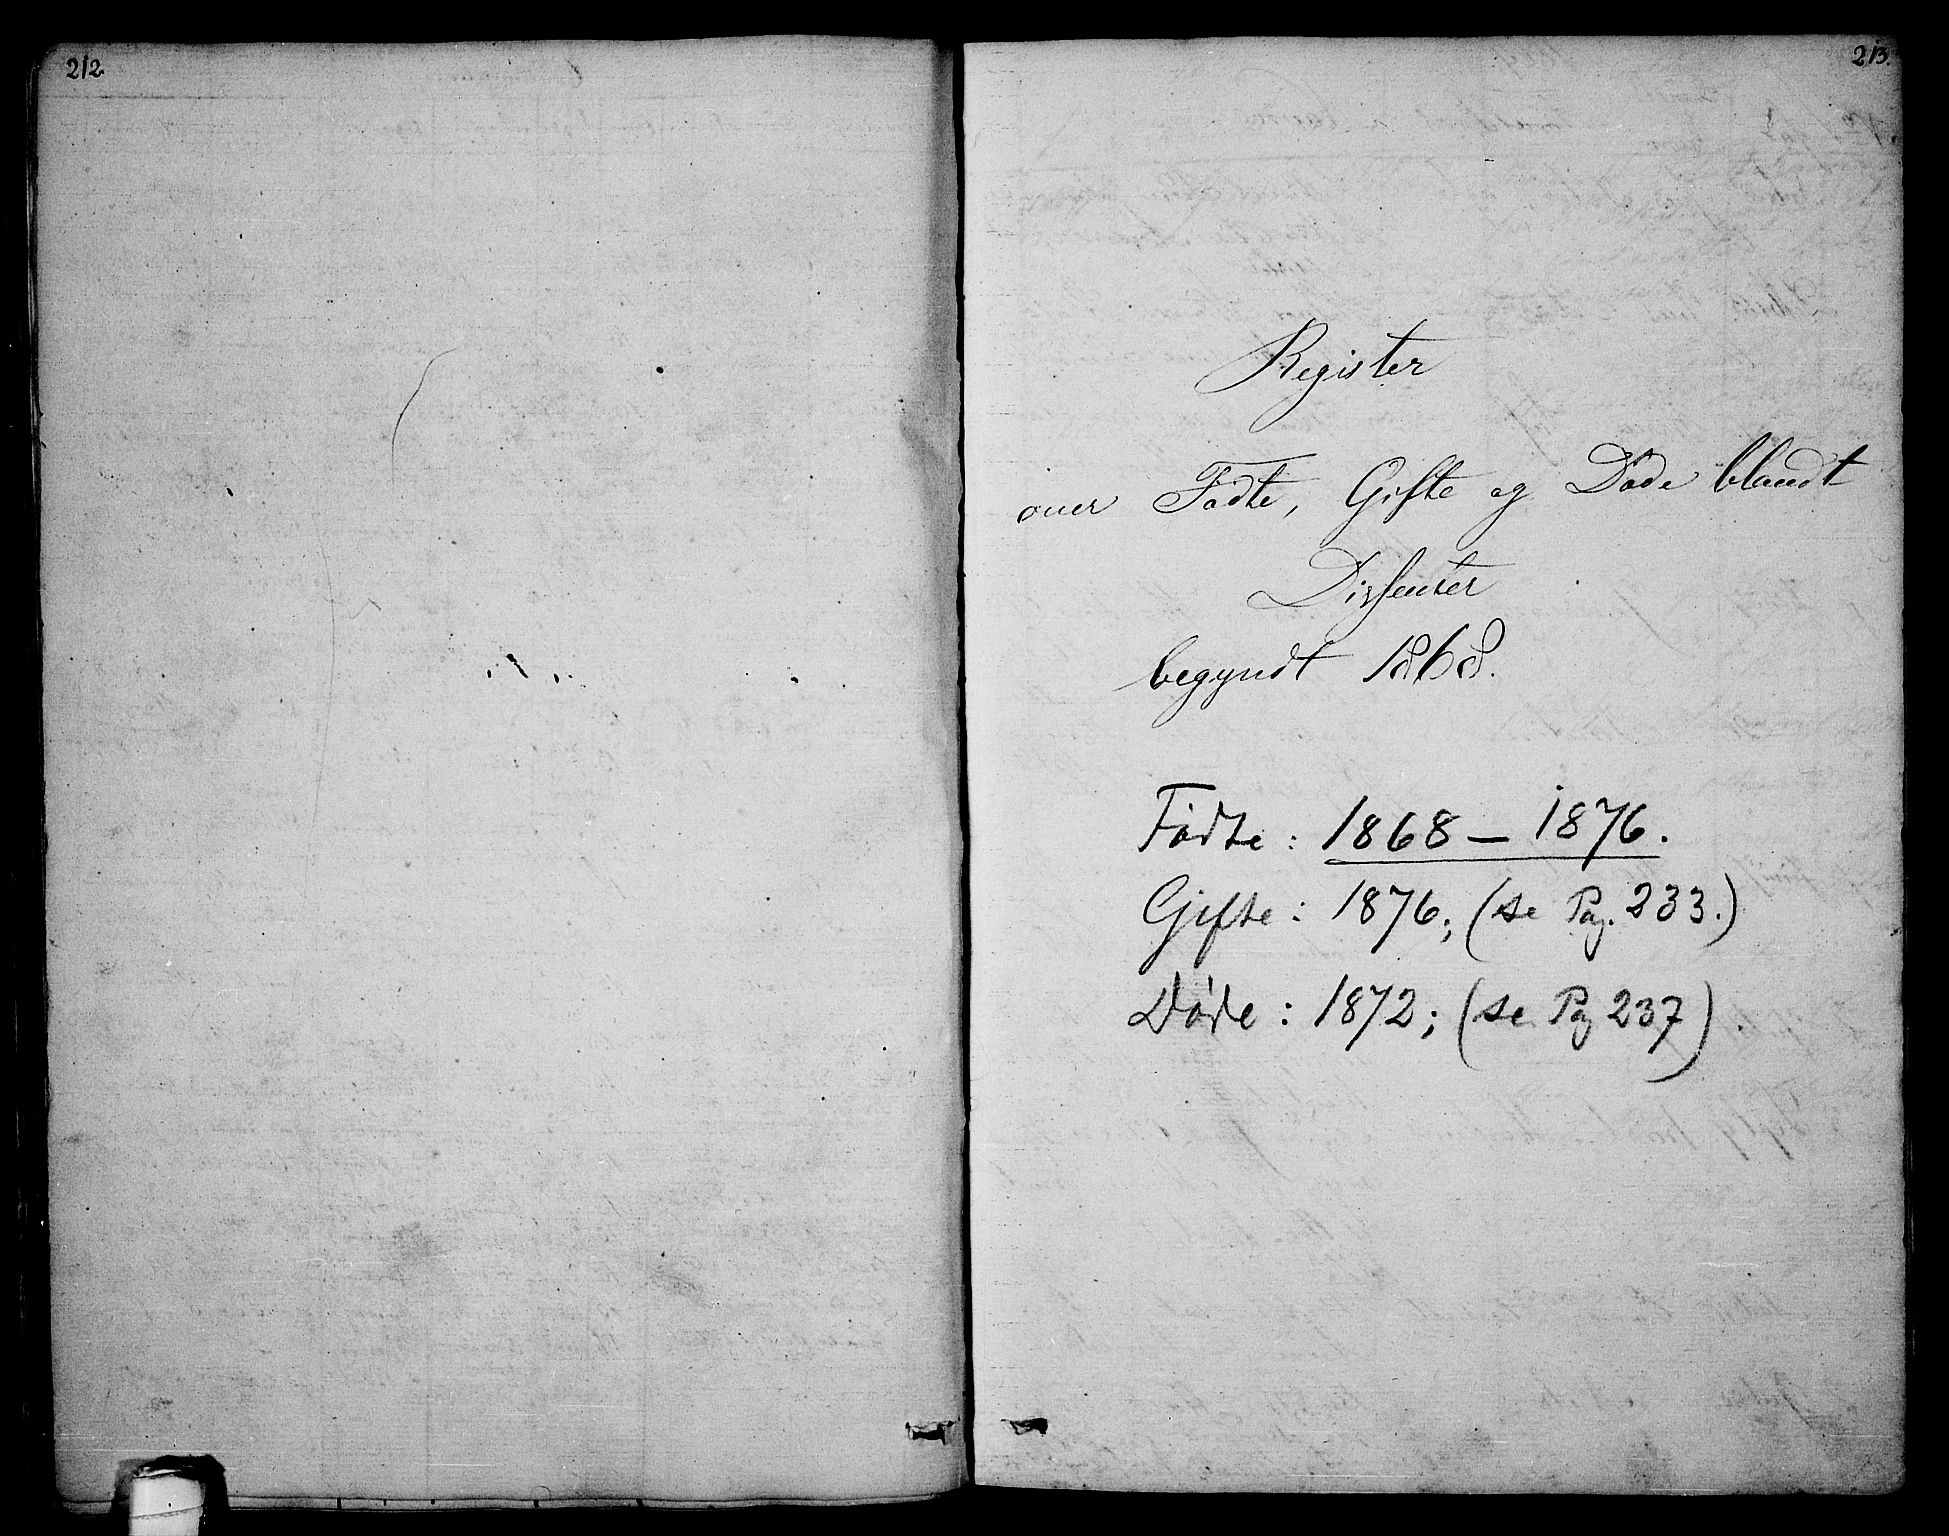 212
213.
Register
over Fødte, Gifte og Døde blandt
Dissenter
begyndt 1868.
Fødte: 1868 — 1876.
Gifte: 1876; (se Pag. 233.)
Døde: 1872; (se Pag 237).